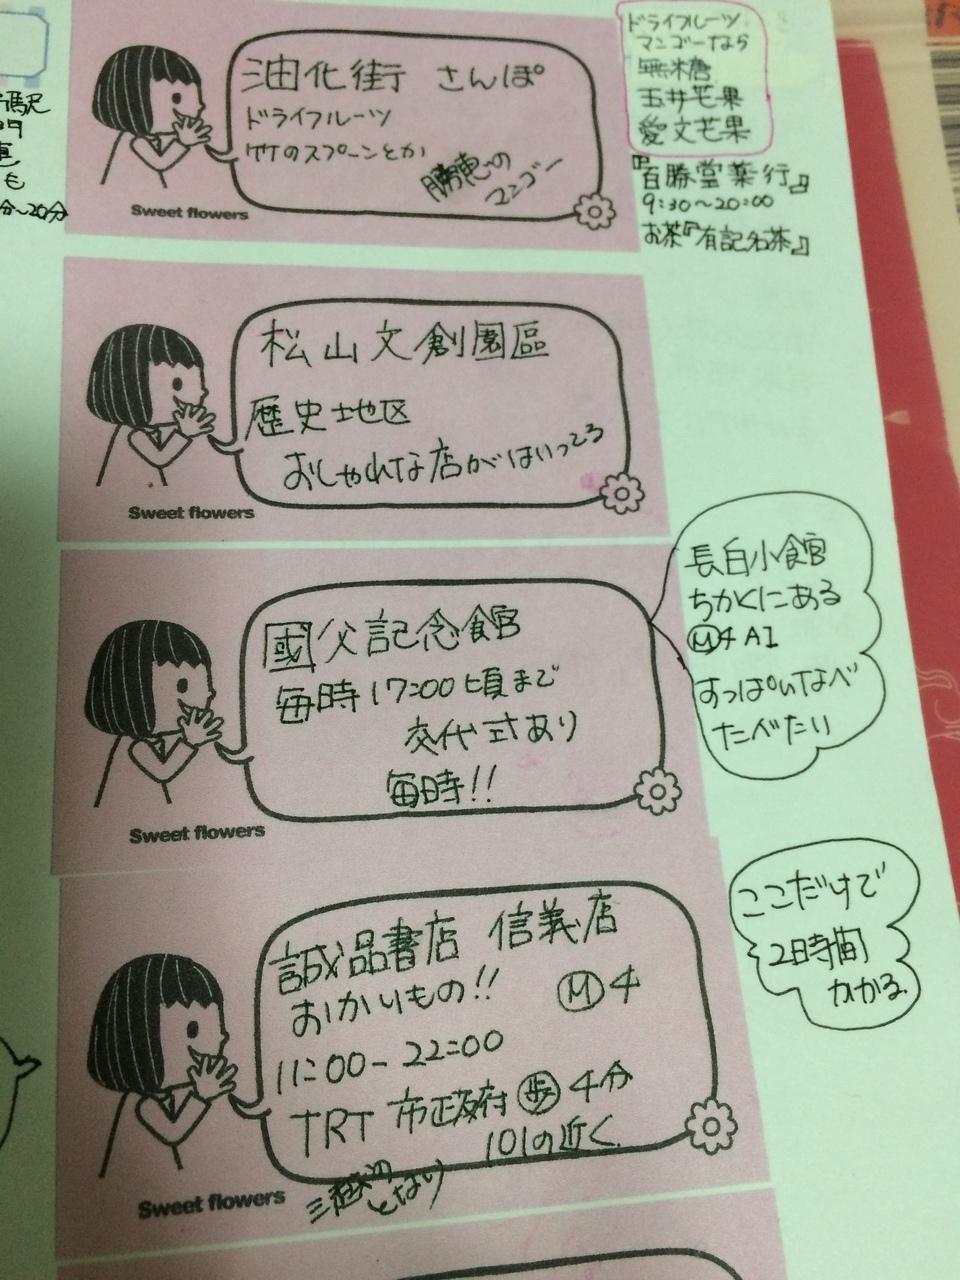 油化街 さんぽ
ドライフルーツ
竹のスプーンとか
マンゴー
Sweet flowers
ドライフルーツ
マンゴーなら
無糖
玉井芒果
愛文芒果
『百勝堂薬行』
9:30〜20:00
お茶『有記名茶』
分〜20分
松山文創園區
歴史地区
おしゃれな店がはいってる
Sweet flowers
國父記念館
毎時17:00頃まで
交代式あり
毎時!!
Sweet flowers
長白小館
ちかくにある
Ⓜ4 A1
すっぱいなべ
たべたい
誠品書店 信義店
おかいもの!! Ⓜ4
11:00-22:00
TRT 市政府 歩 4分
101の近く
三越の
となり
Sweet flowers
ここだけで
2時間
かかる